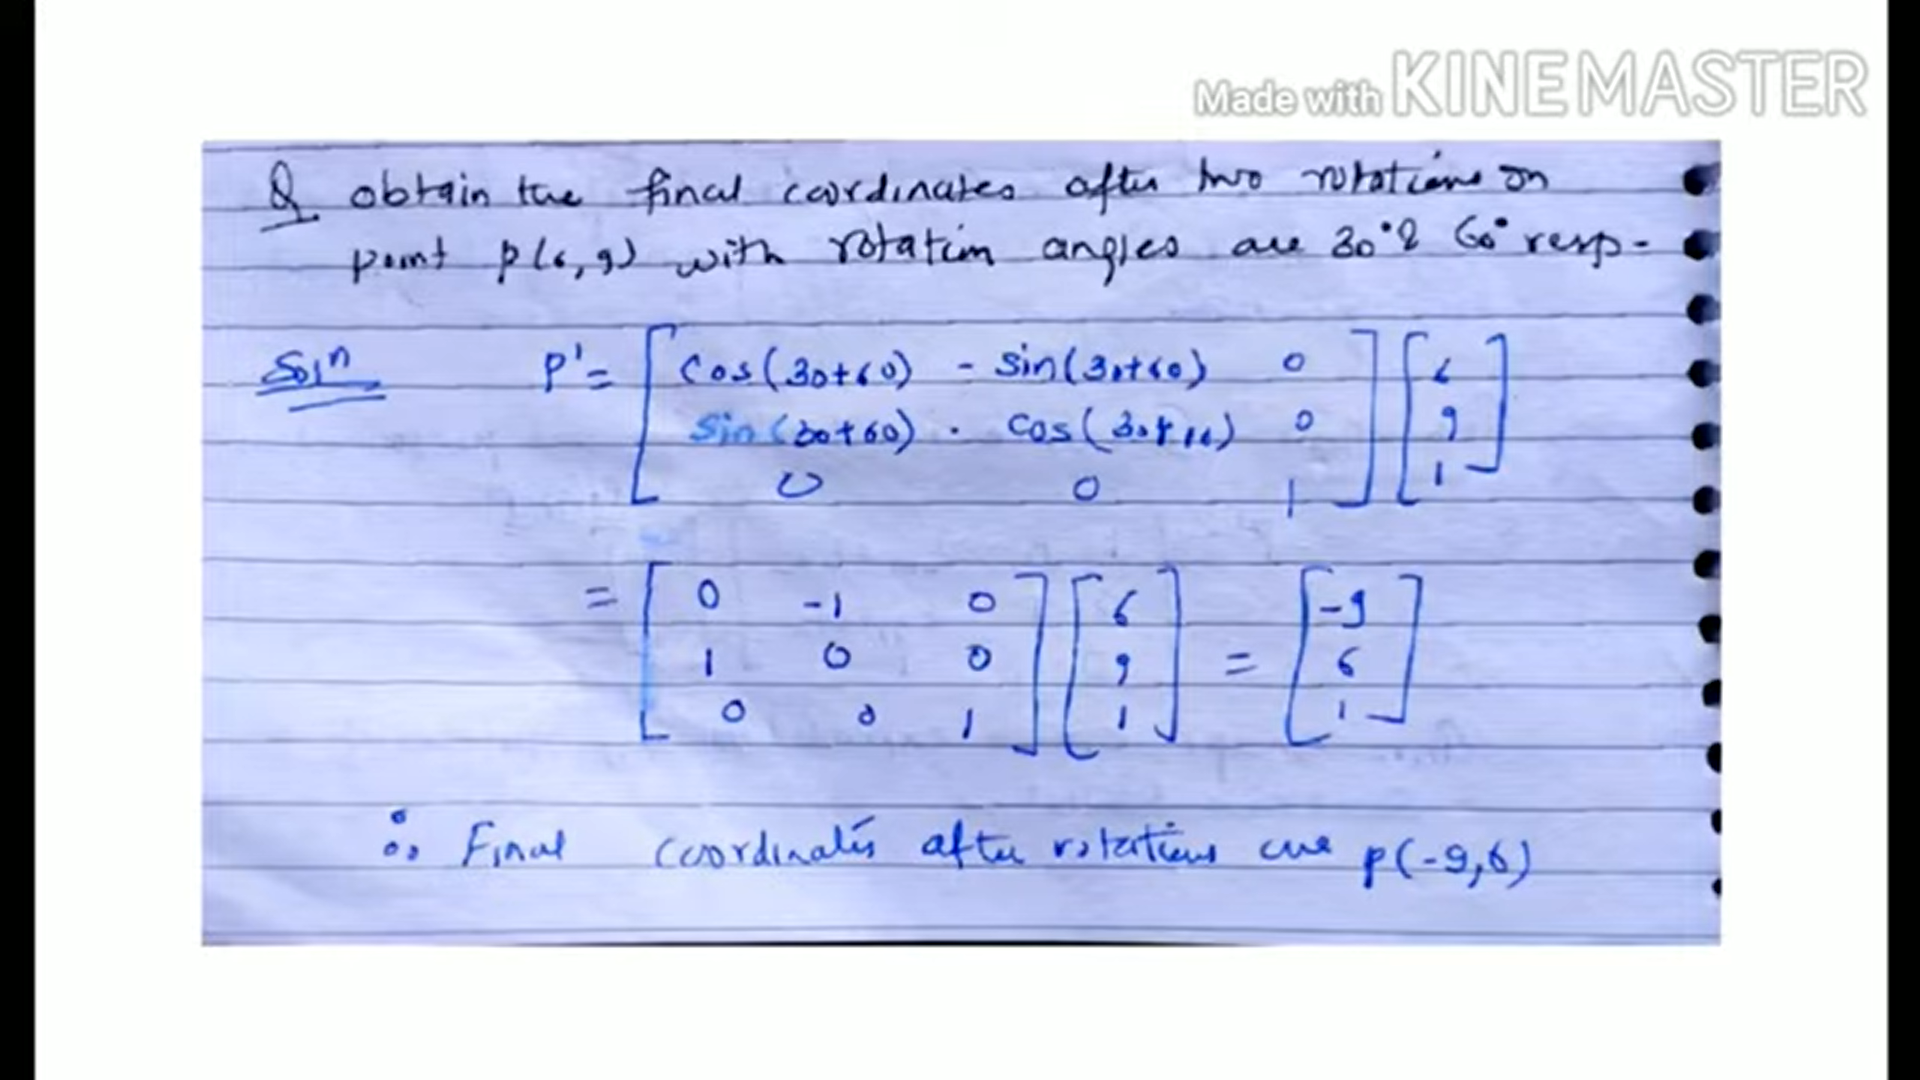 Made with KINEMASTER
Q obtain the final coordinates after two rotations on
point P(6,9) with rotation angles are 30° & 60° resp-
Solⁿ P' = [ cos(30+60) - sin(30+60) 0 ] [ 6 ]
sin(30+60) · cos(30+60) 0 9
0 0 1 1
= [ 0 -1 0 ] [ 6 ] = [ -9 ]
1 0 0 9 6
0 0 1 1 1
∴ Final coordinates after rotations are P(-9,6)